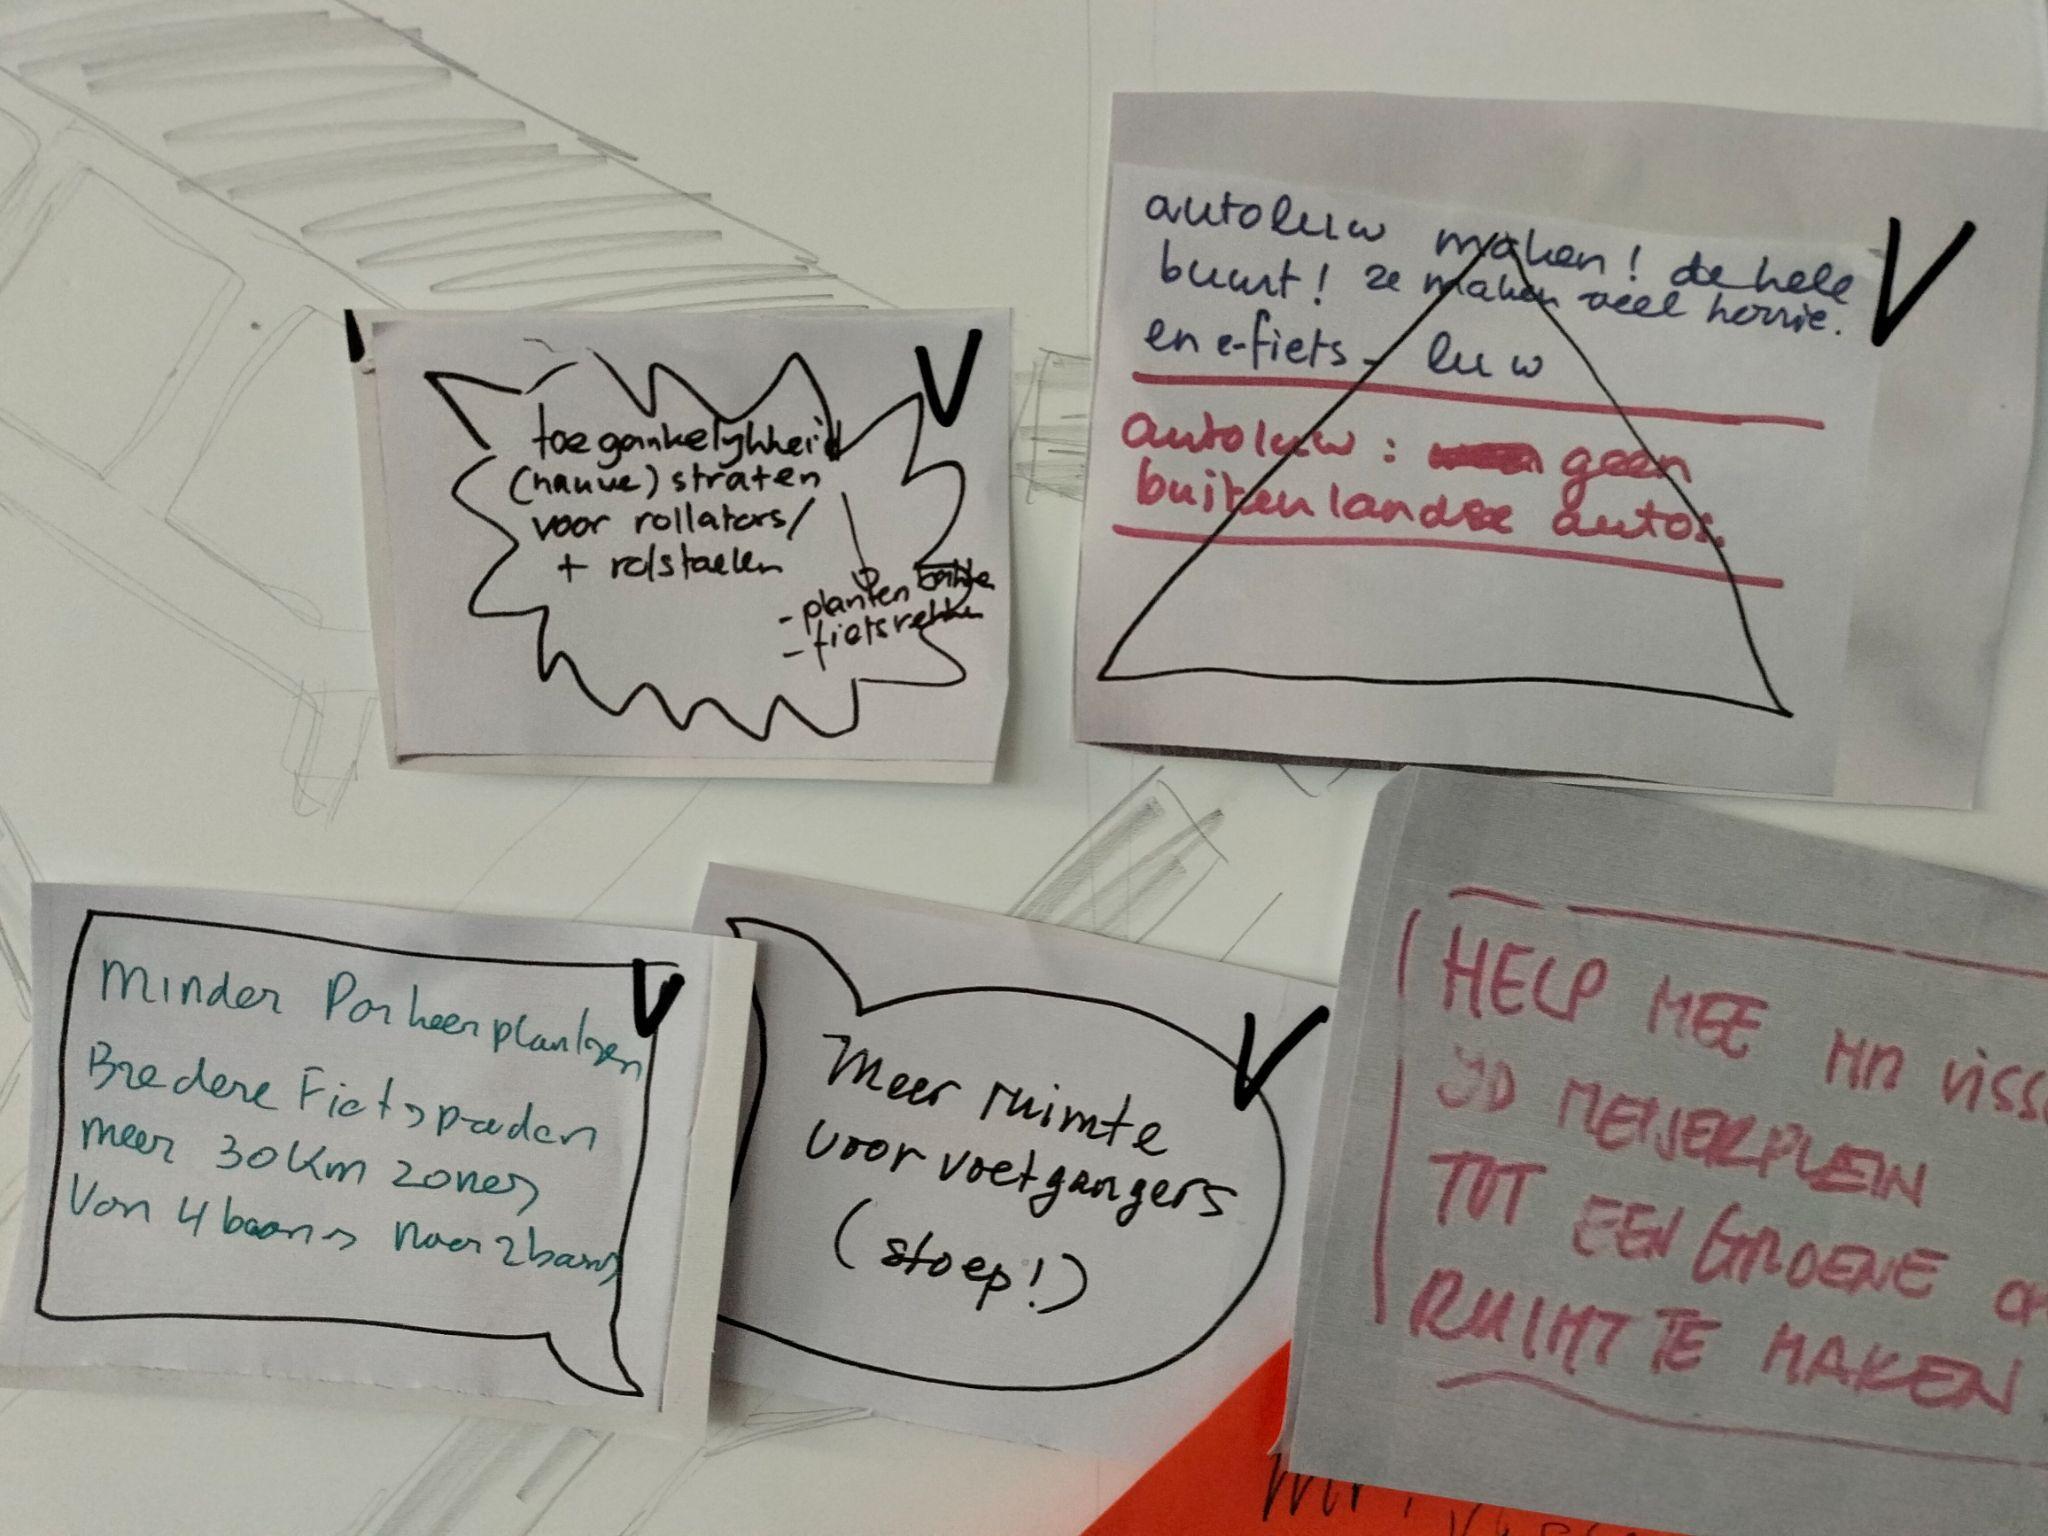 autoluw maken! de hele
buurt! ze maken veel herrie.
en e-fiets - luw
autoluw: geen
buitenlandse autos.
V
toegankelijkheid
(nauwe) straten
voor rollators/
+ rolstoelen
- planten
- fietsrekken
V
Minder Parkeerplaatsen
Bredere Fietspaden
meer 30Km zones
Van 4 baans naar 2 baans
V
Meer ruimte
voor voetgangers
(stoep!)
V
HELP MEE
MEIJERPLEIN
TOT EEN GROENE
RUIMTE MAKEN